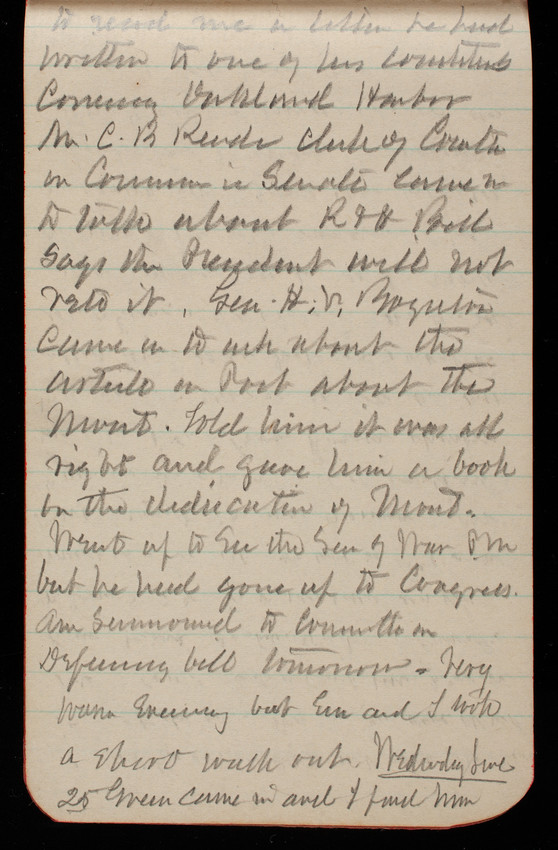 to read me a letter he had
written to one of his constituents
Concerning Oakland Harbor
Mr. C. B. Reade Clerk of Court
on Commerce in Senate came in
to talk about R & H Bill
Says the President will not
veto it, Gen. H. V. Boynton
came in to ask about the
article in Post about the
Mont. Told him it was all
right and gave him a book
on the dedication of Mont.
Went up to See the Sec of War PM
but he had gone up to Congress.
am Summoned to Committee on
Deficiency bill tomorrow - Very
warm Evening but Em and I took
a short walk out. Wednesday June
25 Green came in and I paid him